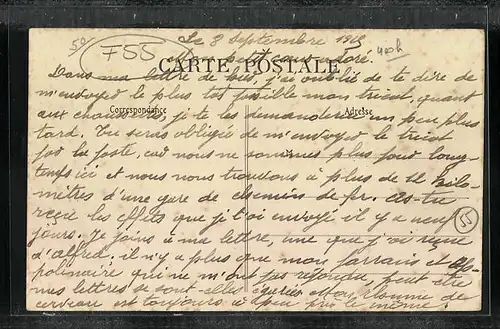 50
F55
400h
Le 8 Septembre 1915
Mon petit adoré.
CARTE POSTALE
Dans ma lettre de hier, j'ai oublié de te dire de
m'envoyer le plus tot possible mon tricot, quant
Correspondance
Adresse
aux chaussettes, je te les demanderai un peu plus
tard. Tu seras obligée de m'envoyer le tricot
par la poste, car nous ne sommes plus pour long-
temps ici et nous nous trouvons à plus de 12 kilo-
mètres d'une gare de chemins de fer. As-tu
reçu les effets que je t'ai envoyé il y a neuf
jours. Je joins à ma lettre, une que j'ai reçue
55
d'Alfred, il n'y a plus que mon parrain et Ap-
polinaire qui ne m'ont pas répondu, peut être
mes lettres se sont elles égarées. Mon rhume de
cerveau est toujours à peu près le même.